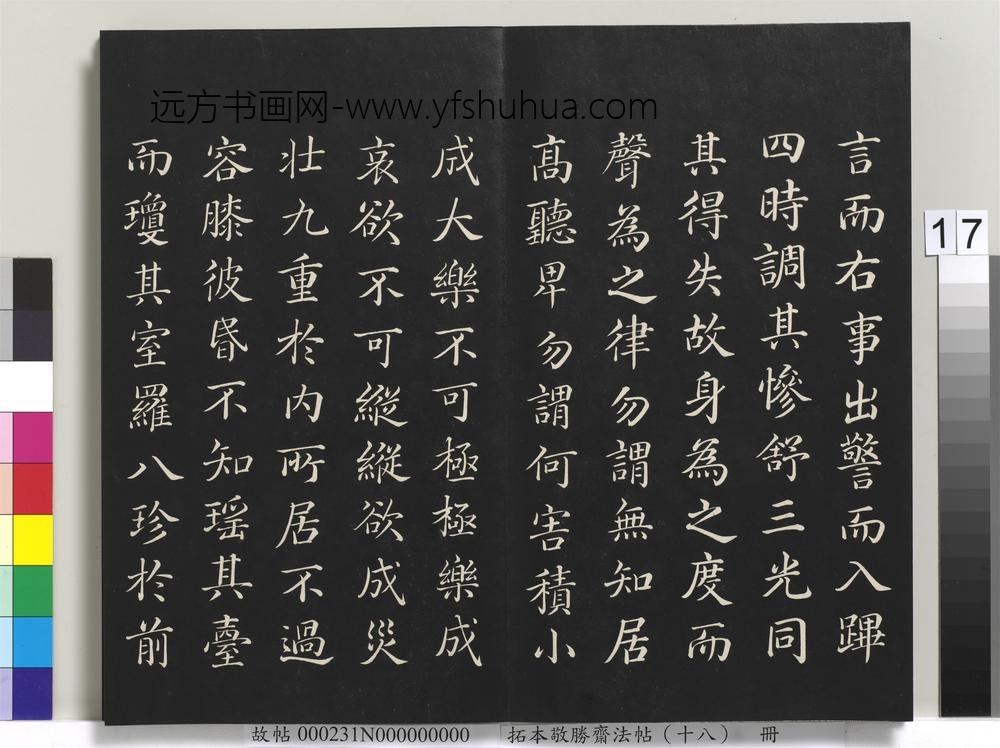 远方书画网-www.yfshuhua.com
言而右事出警而入蹕
四時調其慘舒三光同
其得失故身為之度而
聲為之律勿謂無知居
髙聽卑勿謂何害積小
成大樂不可極極樂成
哀欲不可縱縱欲成災
壮九重於内所居不過
容膝彼昬不知瑶其臺
而瓊其室羅八珍於前
17
故帖 000231N000000000 拓本敬勝齋法帖（十八） 冊